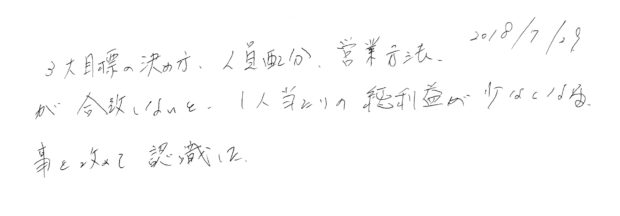 2018/7/29
3大目標の決め方、人員配分、営業方法、
が合致しないと、1人当たりの総利益が少なくなる
事を改めて認識した。